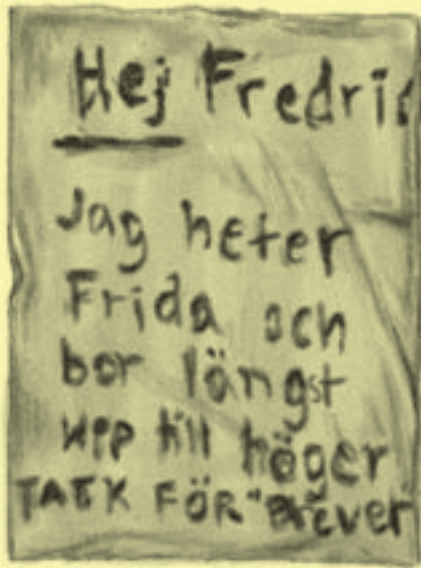 Hej Fredric
Jag heter
Frida och
bor längst
upp till höger
TACK FÖR "Brevet